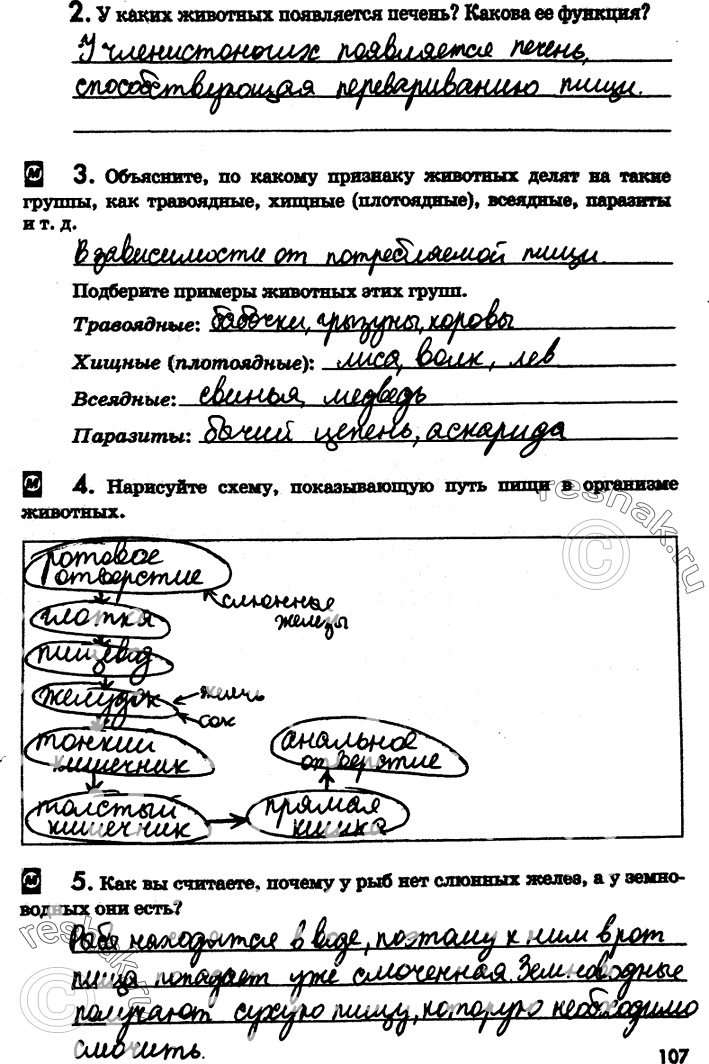 2. У каких животных появляется печень? Какова ее функция?
У членистоногих появляется печень,
способствующая перевариванию пищи.
М 3. Объясните, по какому признаку животных делят на такие
группы, как травоядные, хищные (плотоядные), всеядные, паразиты
и т. д.
В зависимости от потребляемой пищи.
Подберите примеры животных этих групп.
Травоядные: бабочки, грызуны, коровы
Хищные (плотоядные): лиса, волк, лев
Всеядные: свинья, медведь
Паразиты: бычий цепень, аскарида
М 4. Нарисуйте схему, показывающую путь пищи в организме
животных.
ротовое
отверстие
слюнные
железы
глотка
пищевод
желудок
желчь
сок
тонкий
кишечник
анальное
отверстие
толстый
кишечник
прямая
кишка
М 5. Как вы считаете, почему у рыб нет слюнных желез, а у земно-
водных они есть?
Рыбы находятся в воде, поэтому к ним в рот
пища попадает уже смоченная. Земноводные
получают сухую пищу, которую необходимо
смочить.
107
resnak.ru
©
resnak.ru
©